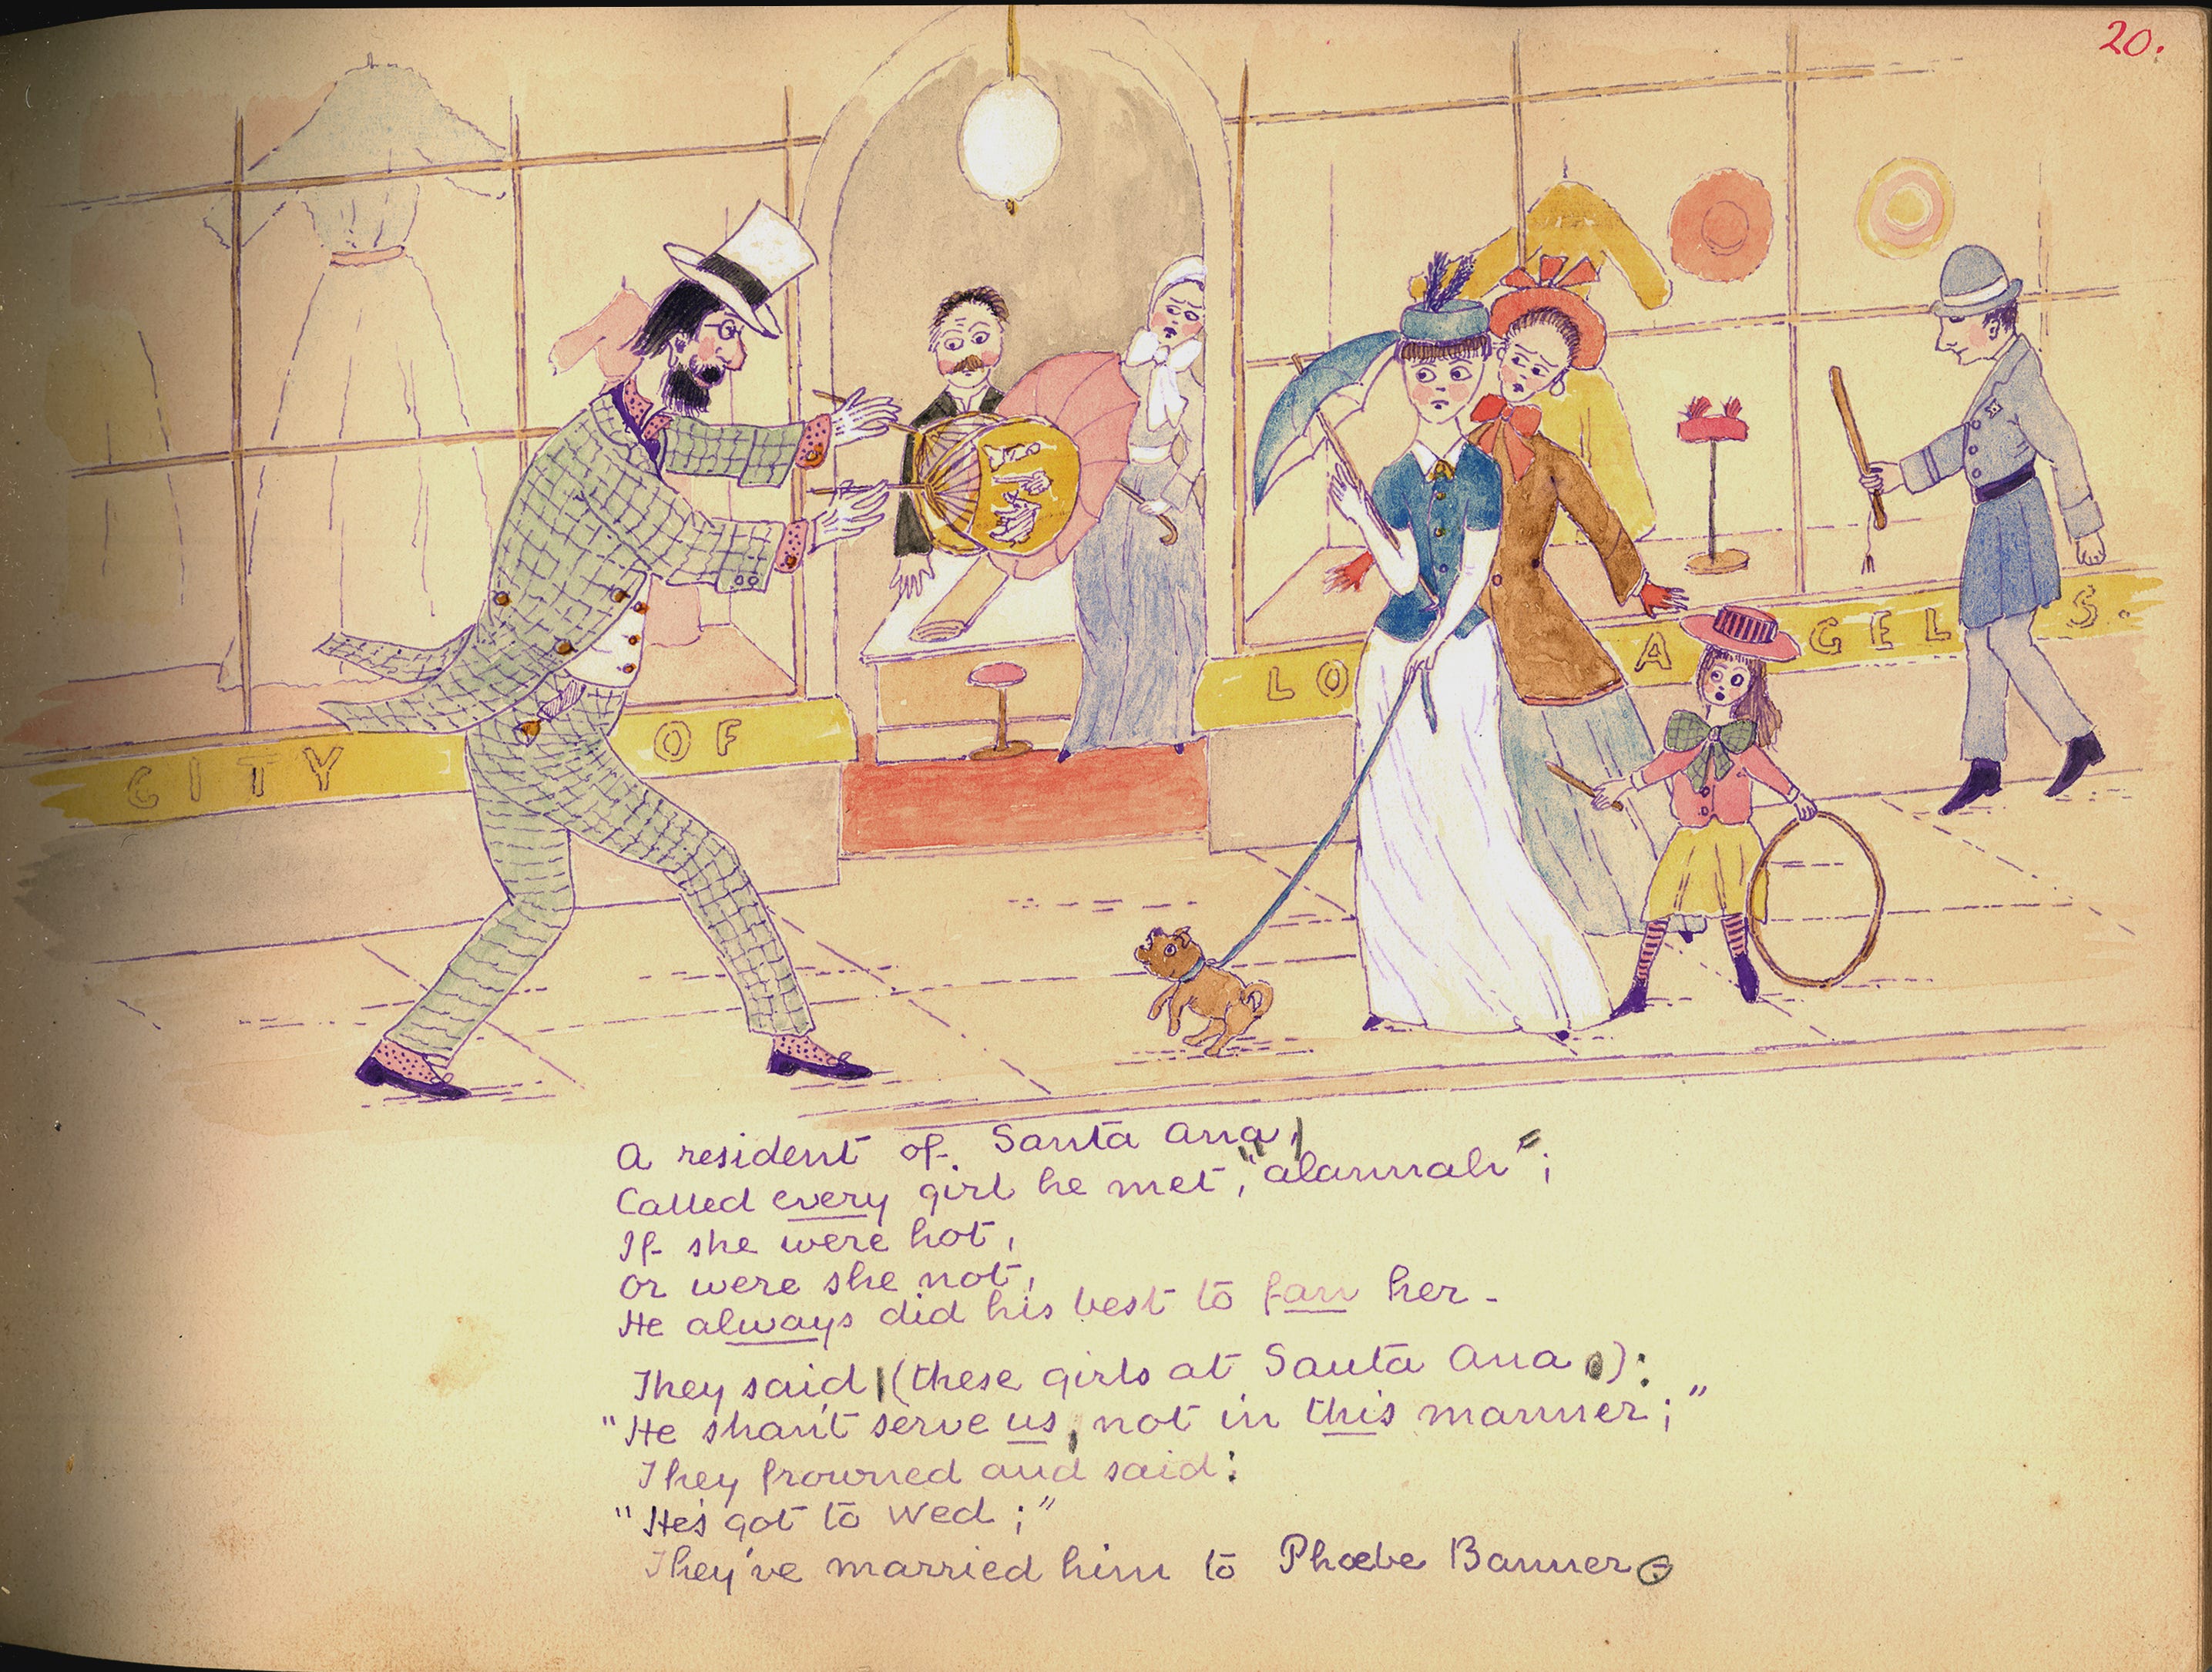 20.
CITY OF LOS ANGELS.
A resident of Santa Ana,
Called every girl he met, "alannah";
If she were hot,
Or were she not,
He always did his best to fan her -
They said (these girls at Santa Ana):
"He shan't serve us, not in this manner;"
They frowned and said:
"He's got to wed;"
They've married him to Phœbe Banner.